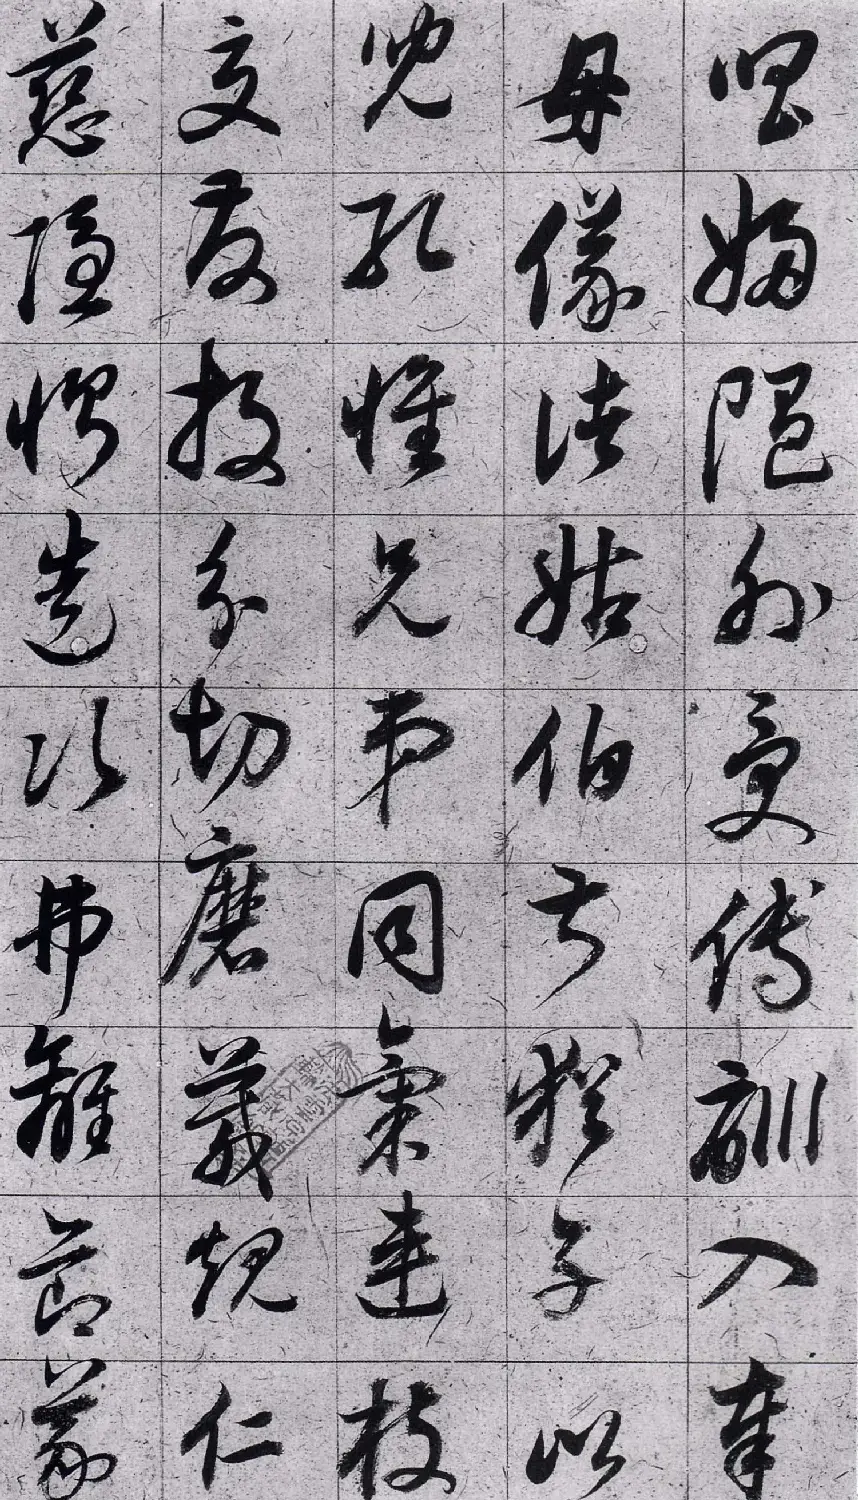 唱婦随外受傅訓入奉
母儀諸姑伯叔猶子以
兒孔懷兄弟同氣連枝
交友投分切磨箴規仁
慈隱惻造次弗離節義